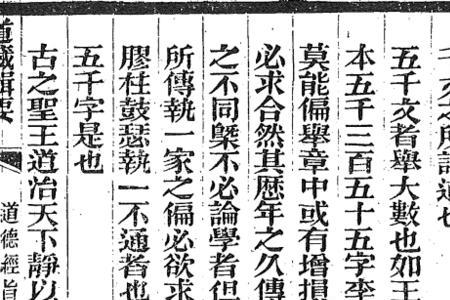 五千文者舉大數也如王
本五千三百五十五字李
莫能徧舉章中或有增損
必求合然其歷年之久傳
之不同槩不必論學者但
所傳執一家之偏必欲求
膠柱鼓瑟執一不通者也
五千字是也
古之聖王道治天下靜以
道藏輯要
道德經旨